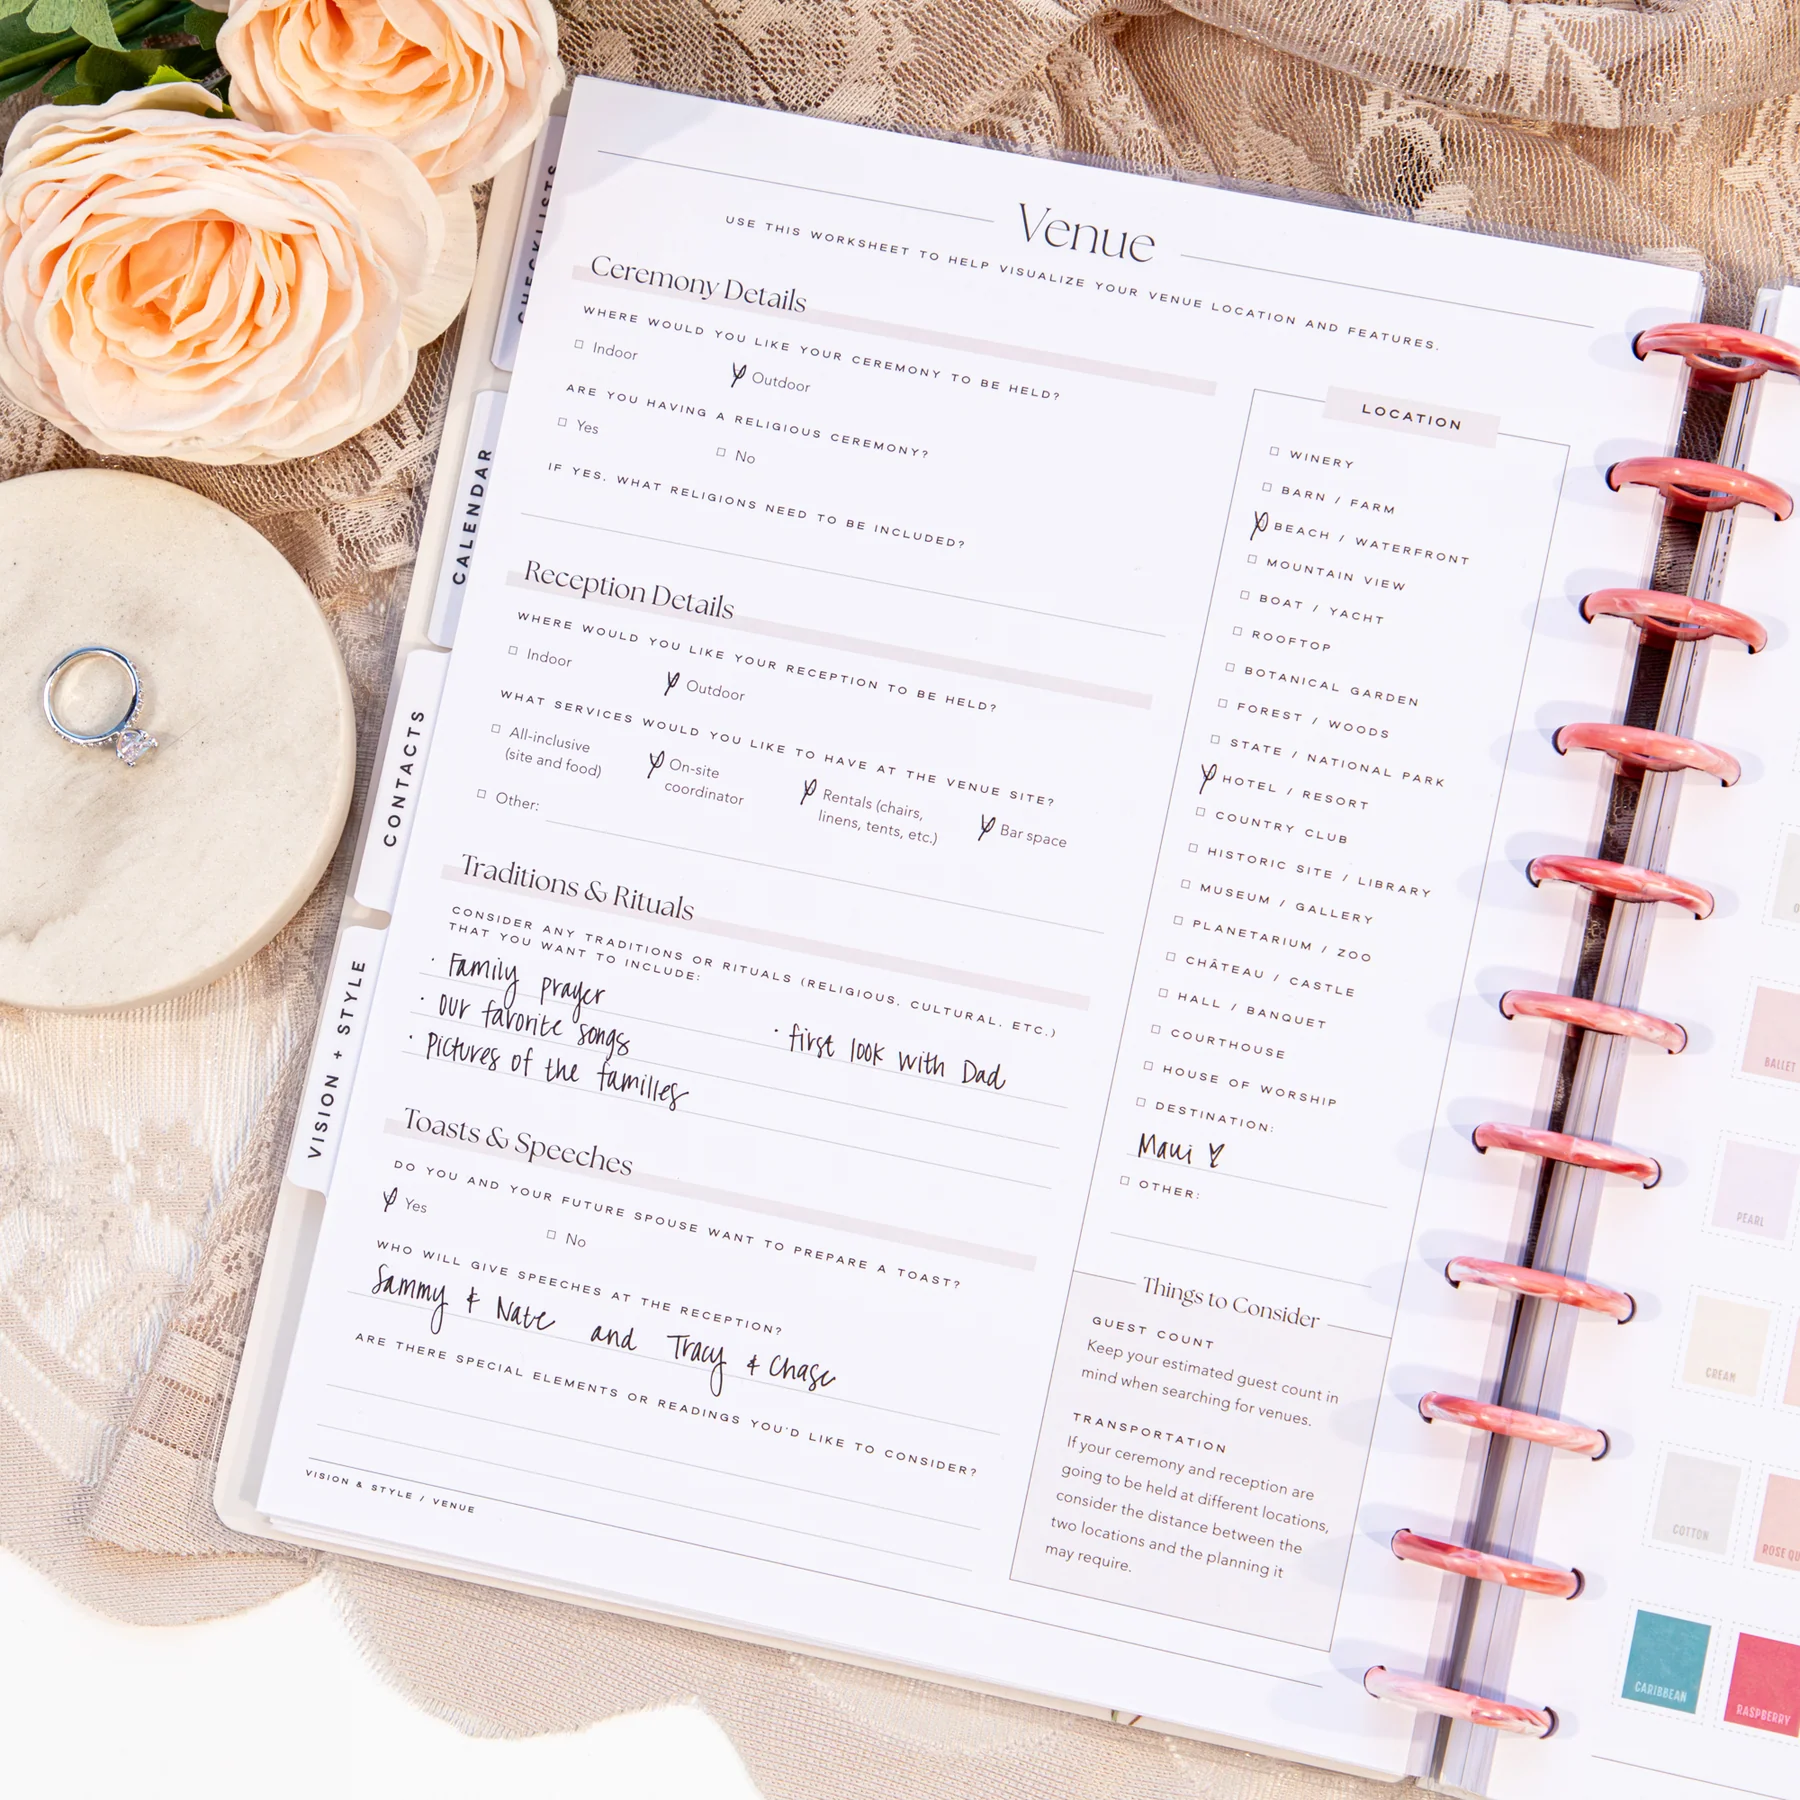 Venue
USE THIS WORKSHEET TO HELP VISUALIZE YOUR VENUE LOCATION AND FEATURES.
Ceremony Details
WHERE WOULD YOU LIKE YOUR CEREMONY TO BE HELD?
Indoor
Outdoor
ARE YOU HAVING A RELIGIOUS CEREMONY?
Yes
No
IF YES, WHAT RELIGIONS NEED TO BE INCLUDED?
Reception Details
WHERE WOULD YOU LIKE YOUR RECEPTION TO BE HELD?
Indoor
Outdoor
WHAT SERVICES WOULD YOU LIKE TO HAVE AT THE VENUE SITE?
All-inclusive
(site and food)
On-site
coordinator
Rentals (chairs,
linens, tents, etc.)
Bar space
Other:
Traditions & Rituals
CONSIDER ANY TRADITIONS OR RITUALS (RELIGIOUS, CULTURAL, ETC.)
THAT YOU WANT TO INCLUDE:
· Family prayer
· our favorite songs
· first look with Dad
· Pictures of the families
Toasts & Speeches
DO YOU AND YOUR FUTURE SPOUSE WANT TO PREPARE A TOAST?
Yes
No
WHO WILL GIVE SPEECHES AT THE RECEPTION?
Sammy & Nate and Tracy & Chase
ARE THERE SPECIAL ELEMENTS OR READINGS YOU'D LIKE TO CONSIDER?
VISION & STYLE / VENUE
LOCATION
WINERY
BARN / FARM
BEACH / WATERFRONT
MOUNTAIN VIEW
BOAT / YACHT
ROOFTOP
BOTANICAL GARDEN
FOREST / WOODS
STATE / NATIONAL PARK
HOTEL / RESORT
COUNTRY CLUB
HISTORIC SITE / LIBRARY
MUSEUM / GALLERY
PLANETARIUM / ZOO
CHÂTEAU / CASTLE
HALL / BANQUET
COURTHOUSE
HOUSE OF WORSHIP
DESTINATION:
Maui
OTHER:
Things to Consider
GUEST COUNT
Keep your estimated guest count in
mind when searching for venues.
TRANSPORTATION
If your ceremony and reception are
going to be held at different locations,
consider the distance between the
two locations and the planning it
may require.
CHECKLISTS
CALENDAR
CONTACTS
VISION + STYLE
BALLET
PEARL
CREAM
COTTON
ROSE QU
CARIBBEAN
RASPBERRY